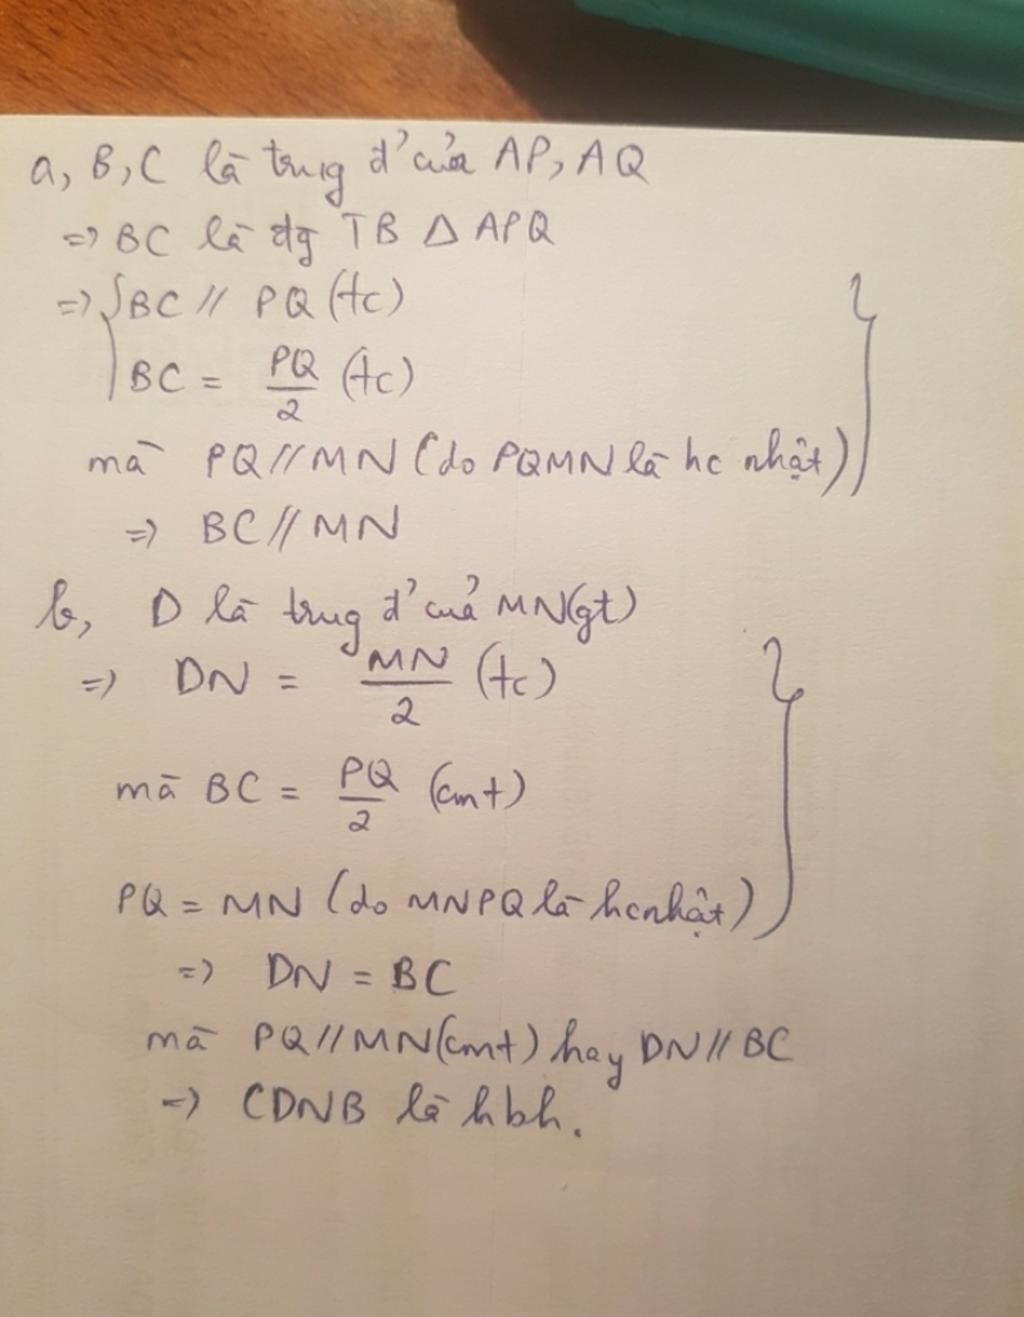 a, B, C là trug đ' của AP, AQ
=> BC là đg TB Δ APQ
=> { BC // PQ (tc)
BC = PQ/2 (tc)
mà PQ // MN (do PQMN là hc nhật)
=> BC // MN
b, D là trug đ' của MN(gt)
=> DN = MN/2 (tc)
mà BC = PQ/2 (cmt)
PQ = MN (do MNPQ là hcnhật)
=> DN = BC
mà PQ // MN(cmt) hay DN // BC
=> CDNB là hbh.